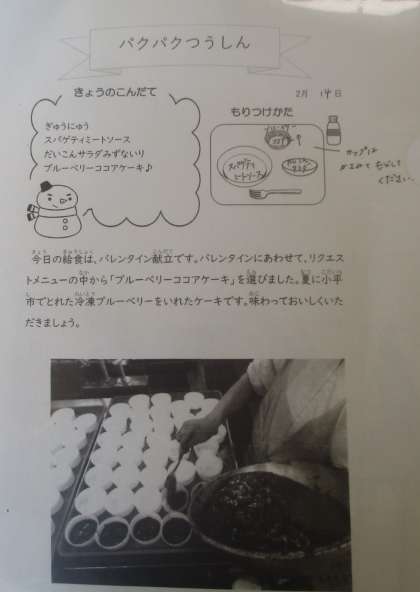 パクパクつうしん
きょうのこんだて
2月 14日
ぎゅうにゅう
スパゲティミートソース
だいこんサラダみずないり
ブルーベリーココアケーキ♪
もりつけかた
ブルーベリー
ココア
スパゲティ
ミートソース
カップは
ください。
今日の給食は、バレンタイン献立です。バレンタインにあわせて、リクエス
トメニューの中から「ブルーベリーココアケーキ」を選びました。夏に小平
市でとれた冷凍ブルーベリーをいれたケーキです。味わっておいしくいた
だきましょう。